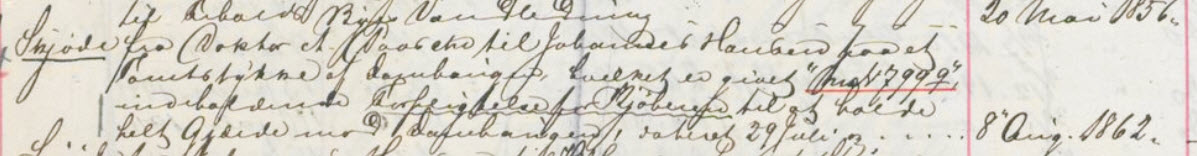 til Arboalds Byes Vandledning 20 Mai 1856.
Skjøde fra Doktor A. Paaske til Johannes Hansen paa et
Tomtstykke af Dambangen, hvilket er givet "Ma N 799 g",
indeholdende Forpligtelse for Kjøberen til at holde
helt Gjærde mod Dambangen, dateret 29 Juli ..... 8 Aug. 1862.
S...